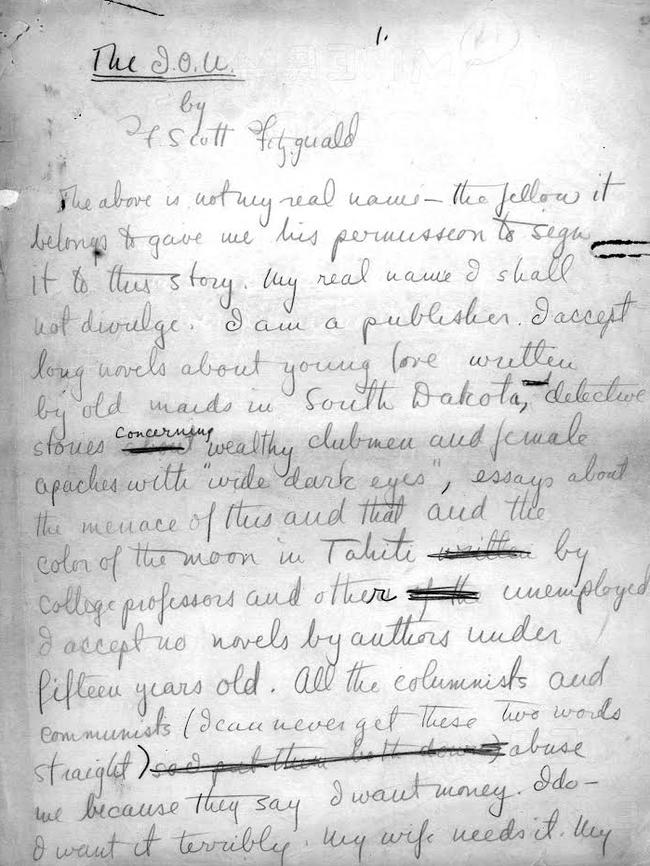 1.
The I.O.U.
by
F Scott Fitzgerald
The above is not my real name – the fellow it
belongs to gave me his permission to sign
it to this story. My real name I shall
not divulge. I am a publisher. I accept
long novels about young love written
by old maids in South Dakota, detective
stories concerning wealthy clubmen and female
apaches with "wide dark eyes", essays about
the menace of this and that and the
color of the moon in Tahiti written by
college professors and other of the unemployed
I accept no novels by authors under
fifteen years old. All the columnists and
communists (I can never get these two words
straight) so I put them both down) abuse
me because they say I want money. I do –
I want it terribly. My wife needs it. My